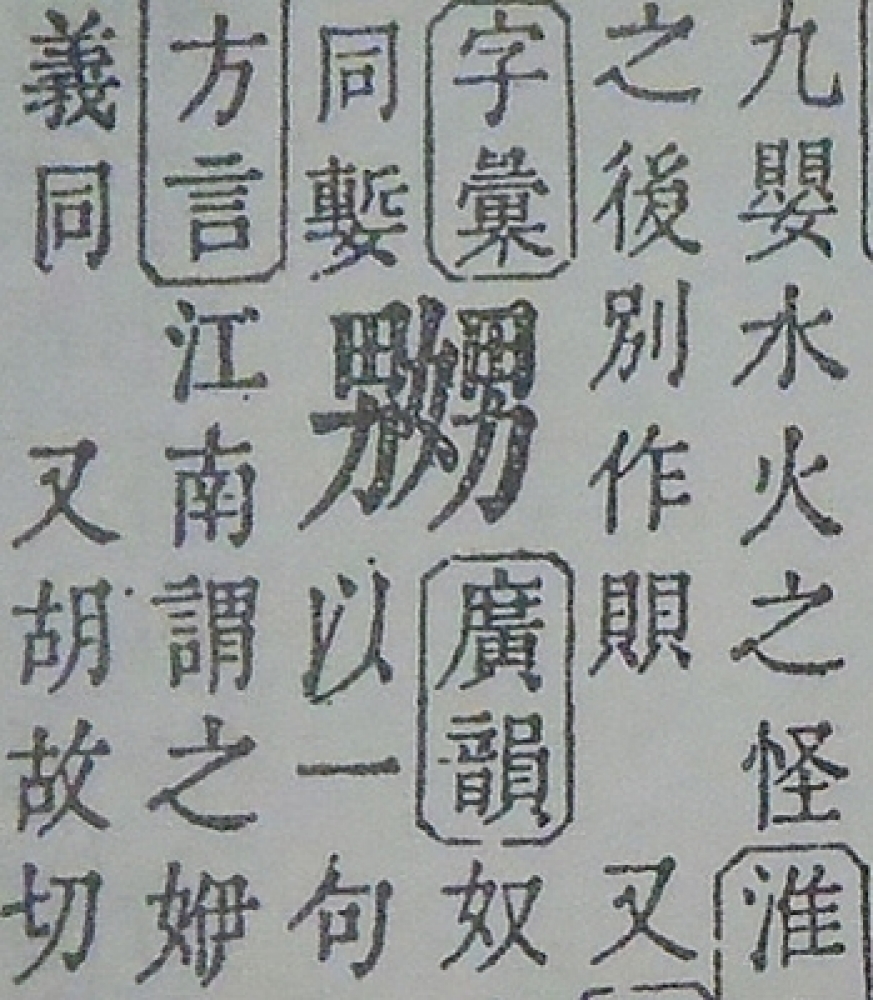 九嬰水火之怪淮
之後別作賏 又
字彙 嬲 廣韻奴
同 以一句
方言江南謂之
義同 又胡故切